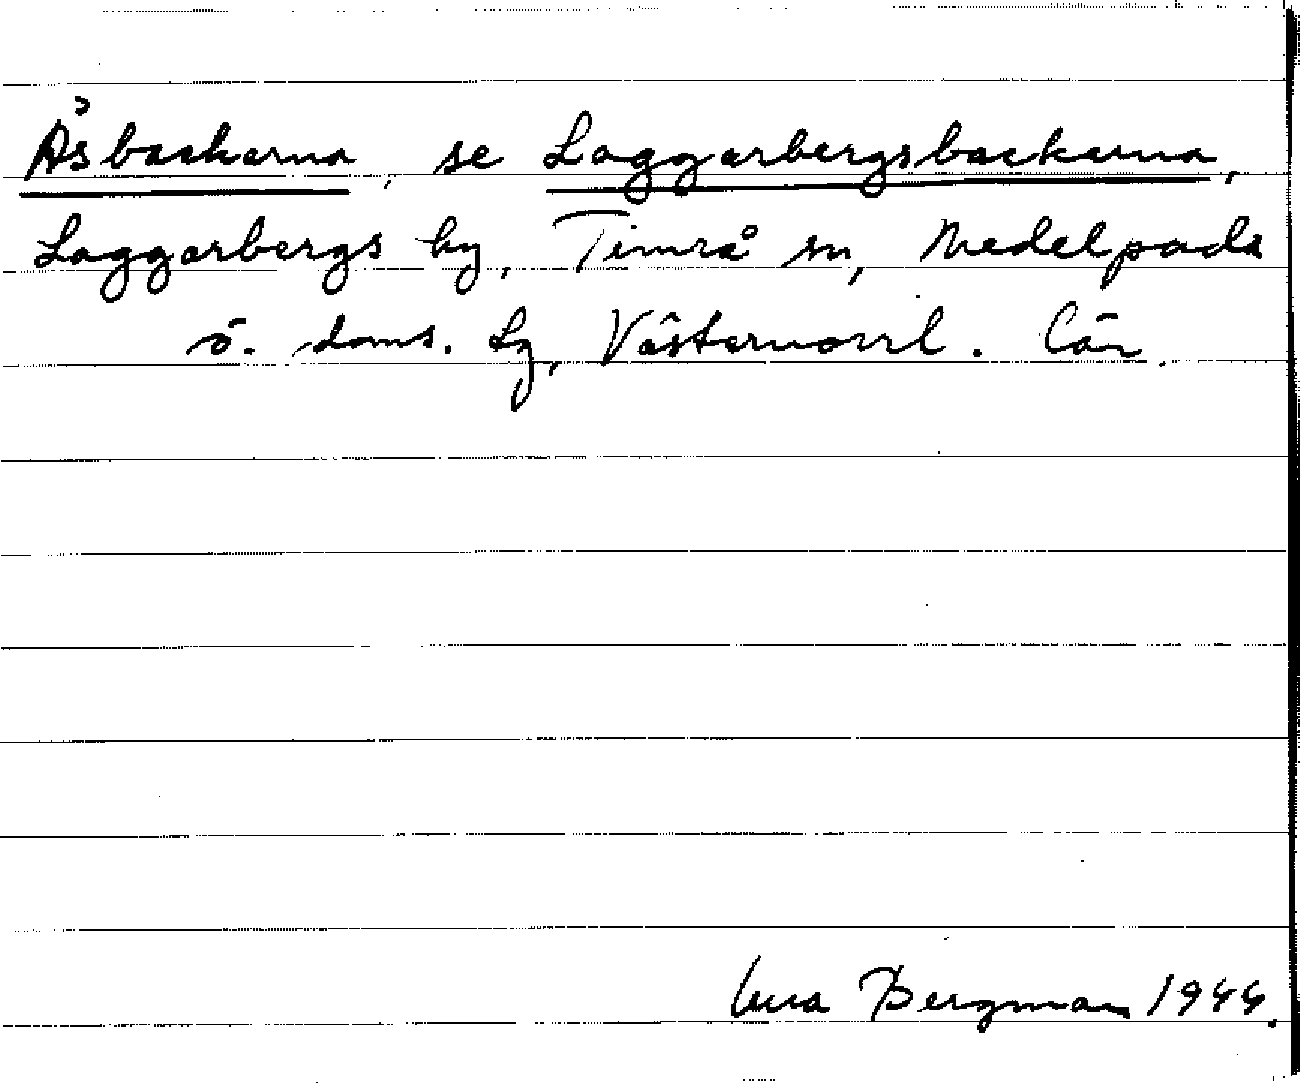 Åsbackarna, se Laggarbergsbackarna,
Laggarbergs by, Timrå sn, Medelpads
ö. doms. hg, Västernorrl. län.
Bergman 1944.